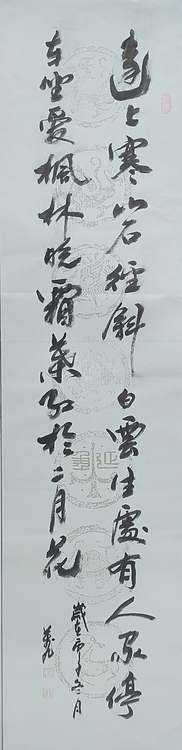 遠上寒山石徑斜白雲生處有人家停
車坐愛楓林晚霜葉紅於二月花
歲在丙子冬月